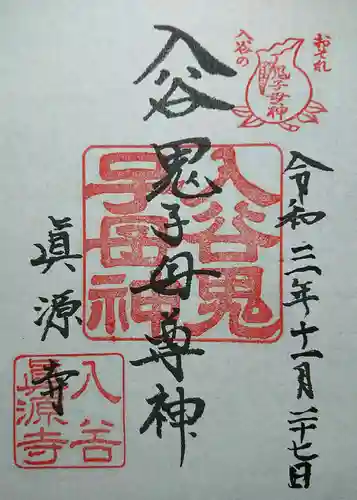 おそれ
入谷の
鬼子母神
令和三年十一月二十七日
入谷
鬼子母尊神
入谷鬼
子母神
眞源寺
入谷
眞源寺